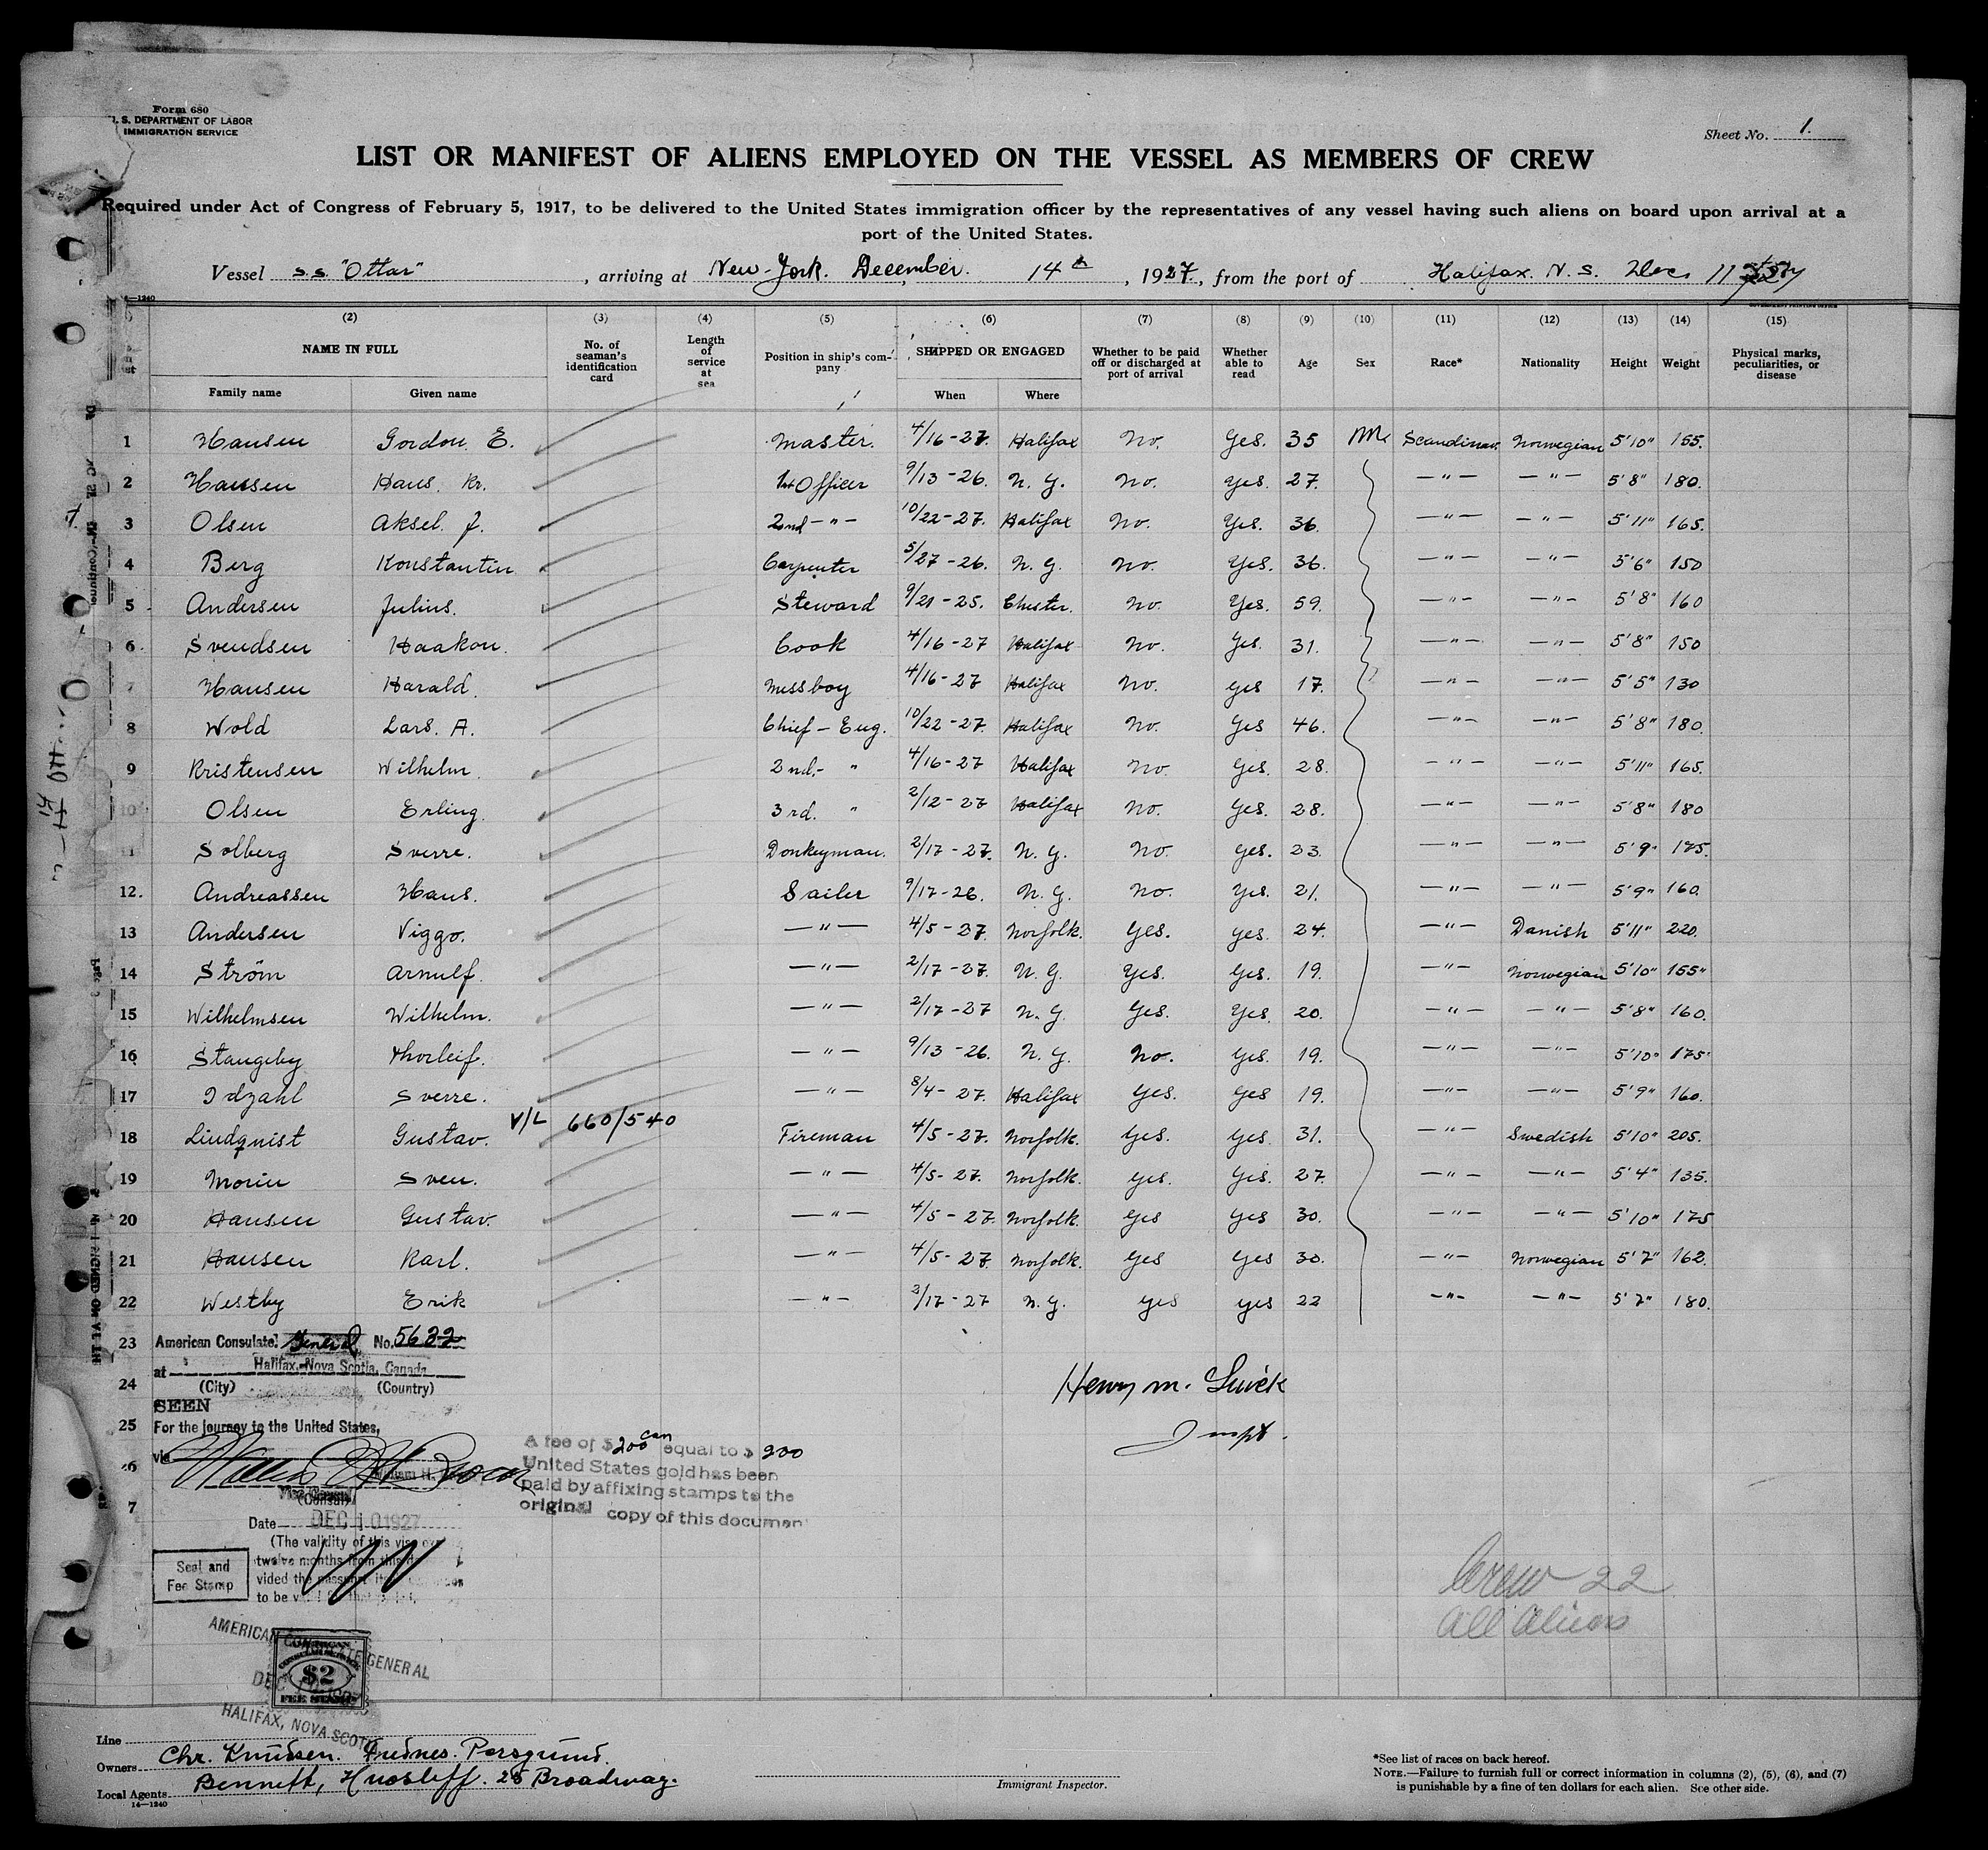 Form 680
U. S. DEPARTMENT OF LABOR
IMMIGRATION SERVICE
Sheet No. 1.
LIST OR MANIFEST OF ALIENS EMPLOYED ON THE VESSEL AS MEMBERS OF CREW
Required under Act of Congress of February 5, 1917, to be delivered to the United States immigration officer by the representatives of any vessel having such aliens on board upon arrival at a
port of the United States.
Vessel s.s. "Ottar", arriving at New-York. December. 14th, 1927, from the port of Halifax. N. S. Dec. 11
(2) (3) (4) (5) (6) (7) (8) (9) (10) (11) (12) (13) (14) (15)
NAME IN FULL No. of seaman's identification card Length of service at sea Position in ship's company SHIPPED OR ENGAGED Whether to be paid off or discharged at port of arrival Whether able to read Age Sex Race* Nationality Height Weight Physical marks, peculiarities, or disease
Family name Given name When Where
1 Hansen Gordon E. Master. 4/16-27. Halifax No. Yes. 35 M Scandinav. Norwegian 5'10" 155.
2 Hansen Hans. Kr. 1st Officer 9/13-26. N. Y. No. Yes. 27. —"— —"— 5'8" 180.
3 Olsen Aksel. J. 2nd —"— 10/22-27. Halifax No. Yes. 36. —"— —"— 5'11" 165.
4 Berg Konstantin Carpenter 5/27-26. N. Y. No. Yes. 36. —"— —"— 5'6" 150
5 Andersen Julius. Steward 9/21-25. Chester. No. Yes. 59. —"— —"— 5'8" 160
6 Svendsen Haakon. Cook 4/16-27 Halifax No. Yes. 31. —"— —"— 5'8" 150
7 Hansen Harald. Messboy 4/16-27 Halifax No. Yes 17. —"— —"— 5'5" 130
8 Wold Lars. A. Chief-Eng. 10/22-27. Halifax No. Yes 46. —"— —"— 5'8" 180.
9 Kristensen Wilhelm. 2nd.- " 4/16-27 Halifax No. Yes. 28. —"— —"— 5'11" 165.
10 Olsen Erling. 3rd. " 2/12-27 Halifax No. Yes. 28. —"— —"— 5'8" 180
11 Solberg Sverre. Donkeyman. 2/17-27. N. Y. No. Yes. 23. —"— —"— 5'9" 175.
12. Andreassen Hans. Sailer 9/17-26. N. Y. No. Yes. 21. —"— —"— 5'9" 160.
13 Andersen Viggo. —"— 4/5-27. Norfolk. Yes. Yes. 24. —"— Danish 5'11" 220.
14 Strøm Arnulf. —"— 2/17-27. N. Y. Yes. Yes. 19. —"— Norwegian 5'10" 155"
15 Wilhelmsen Wilhelm. —"— 2/17-27 N. Y. Yes. Yes. 20. —"— —"— 5'8" 160.
16 Stangeby Thorleif. —"— 9/13-26. N. Y. No. Yes. 19. —"— —"— 5'10" 175
17 Idzahl Sverre. —"— 8/4-27. Halifax Yes. Yes 19. —"— —"— 5'9" 160.
V/L 660/540
18 Lindqvist Gustav. Fireman 4/5-27. Norfolk. Yes. Yes. 31. —"— Swedish 5'10" 205.
19 Morin Sven. —"— 4/5-27. Norfolk. Yes. Yes. 27. —"— —"— 5'4" 135.
20 Hansen Gustav. —"— 4/5-27. Norfolk. Yes Yes 30. —"— —"— 5'10" 175
21 Hansen Karl. —"— 4/5-27. Norfolk. Yes Yes 30. —"— Norwegian 5'7" 162.
22 Westby Erik —"— 2/17-27 N. Y. Yes Yes 22 —"— —"— 5'7" 180.
23 American Consulate General No. 5632
at Halifax, Nova Scotia, Canada
24 (City) (Country)
Henry M.
SEEN
25 For the journey to the United States,
Inspt.
via
A fee of $2.00 can equal to $ 200
United States gold has been
paid by affixing stamps to the
original copy of this document
(Consul)
Date DEC 10 1927
(The validity of this visa
twelve months from this
vided the passport
to be
Seal and
Fee Stamp
Crew 22
All Aliens
AMERICAN CONSULATE GENERAL
$2
FEE STAMP
HALIFAX, NOVA SCOTIA
Line
Owners Chr. Knudsen. Frednes. Porsgrund.
Local Agents Bennett, Hvoslef. 25 Broadway.
14—1240
Immigrant Inspector.
*See list of races on back hereof.
NOTE.—Failure to furnish full or correct information in columns (2), (5), (6), and (7)
is punishable by a fine of ten dollars for each alien. See other side.